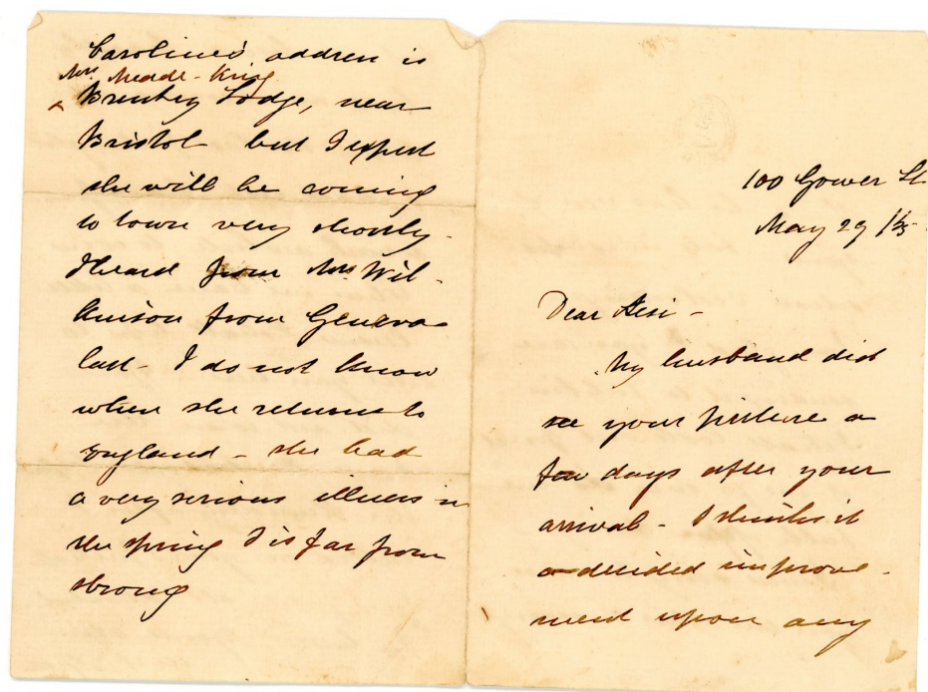 Caroline's address is
Mrs. Meade-King
Brentry Lodge, near
Bristol but I expect
she will be coming
to town very shortly -
I heard from Mrs Wil-
kinson from Geneva
last - I do not know
when she returns to
England - she had
a very serious illness in
the spring & is far from
strong
100 Gower St.
May 29
Dear
My husband did
see your picture a
few days after your
arrival - I think it
a decided improve-
ment upon any